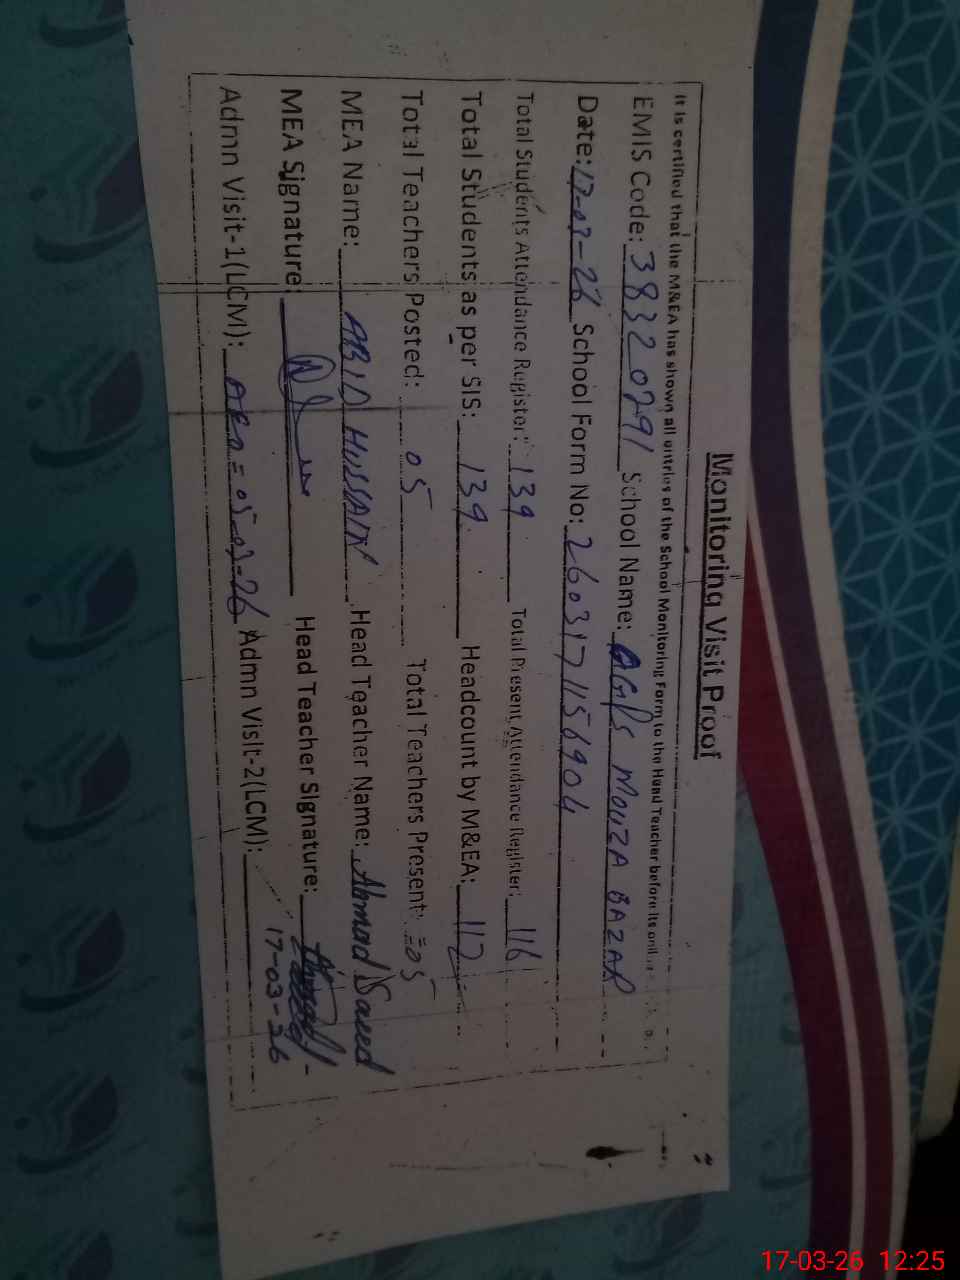 Monitoring Visit Proof
It is certified that the M&EA has shown all entries of the School Monitoring Form to the Head Teacher before its
EMIS Code: 38320291 School Name: GGPS MOUZA BAZAR
Date: 17-03-26 School Form No: 2603171156904
Total Students Attendance Register: 139 Total Present Attendance Register: 116
Total Students as per SIS: 139 Headcount by M&EA: 112
Total Teachers Posted: 05 Total Teachers Present: =05
MEA Name: ABID HUSSAIN Head Teacher Name: Ahmad Saeed
MEA Signature: Head Teacher Signature: Ahmad
17-03-26
Admn Visit-1(LCM): AEO = 05-03-26 Admn Visit-2(LCM):
17-03-26 12:25